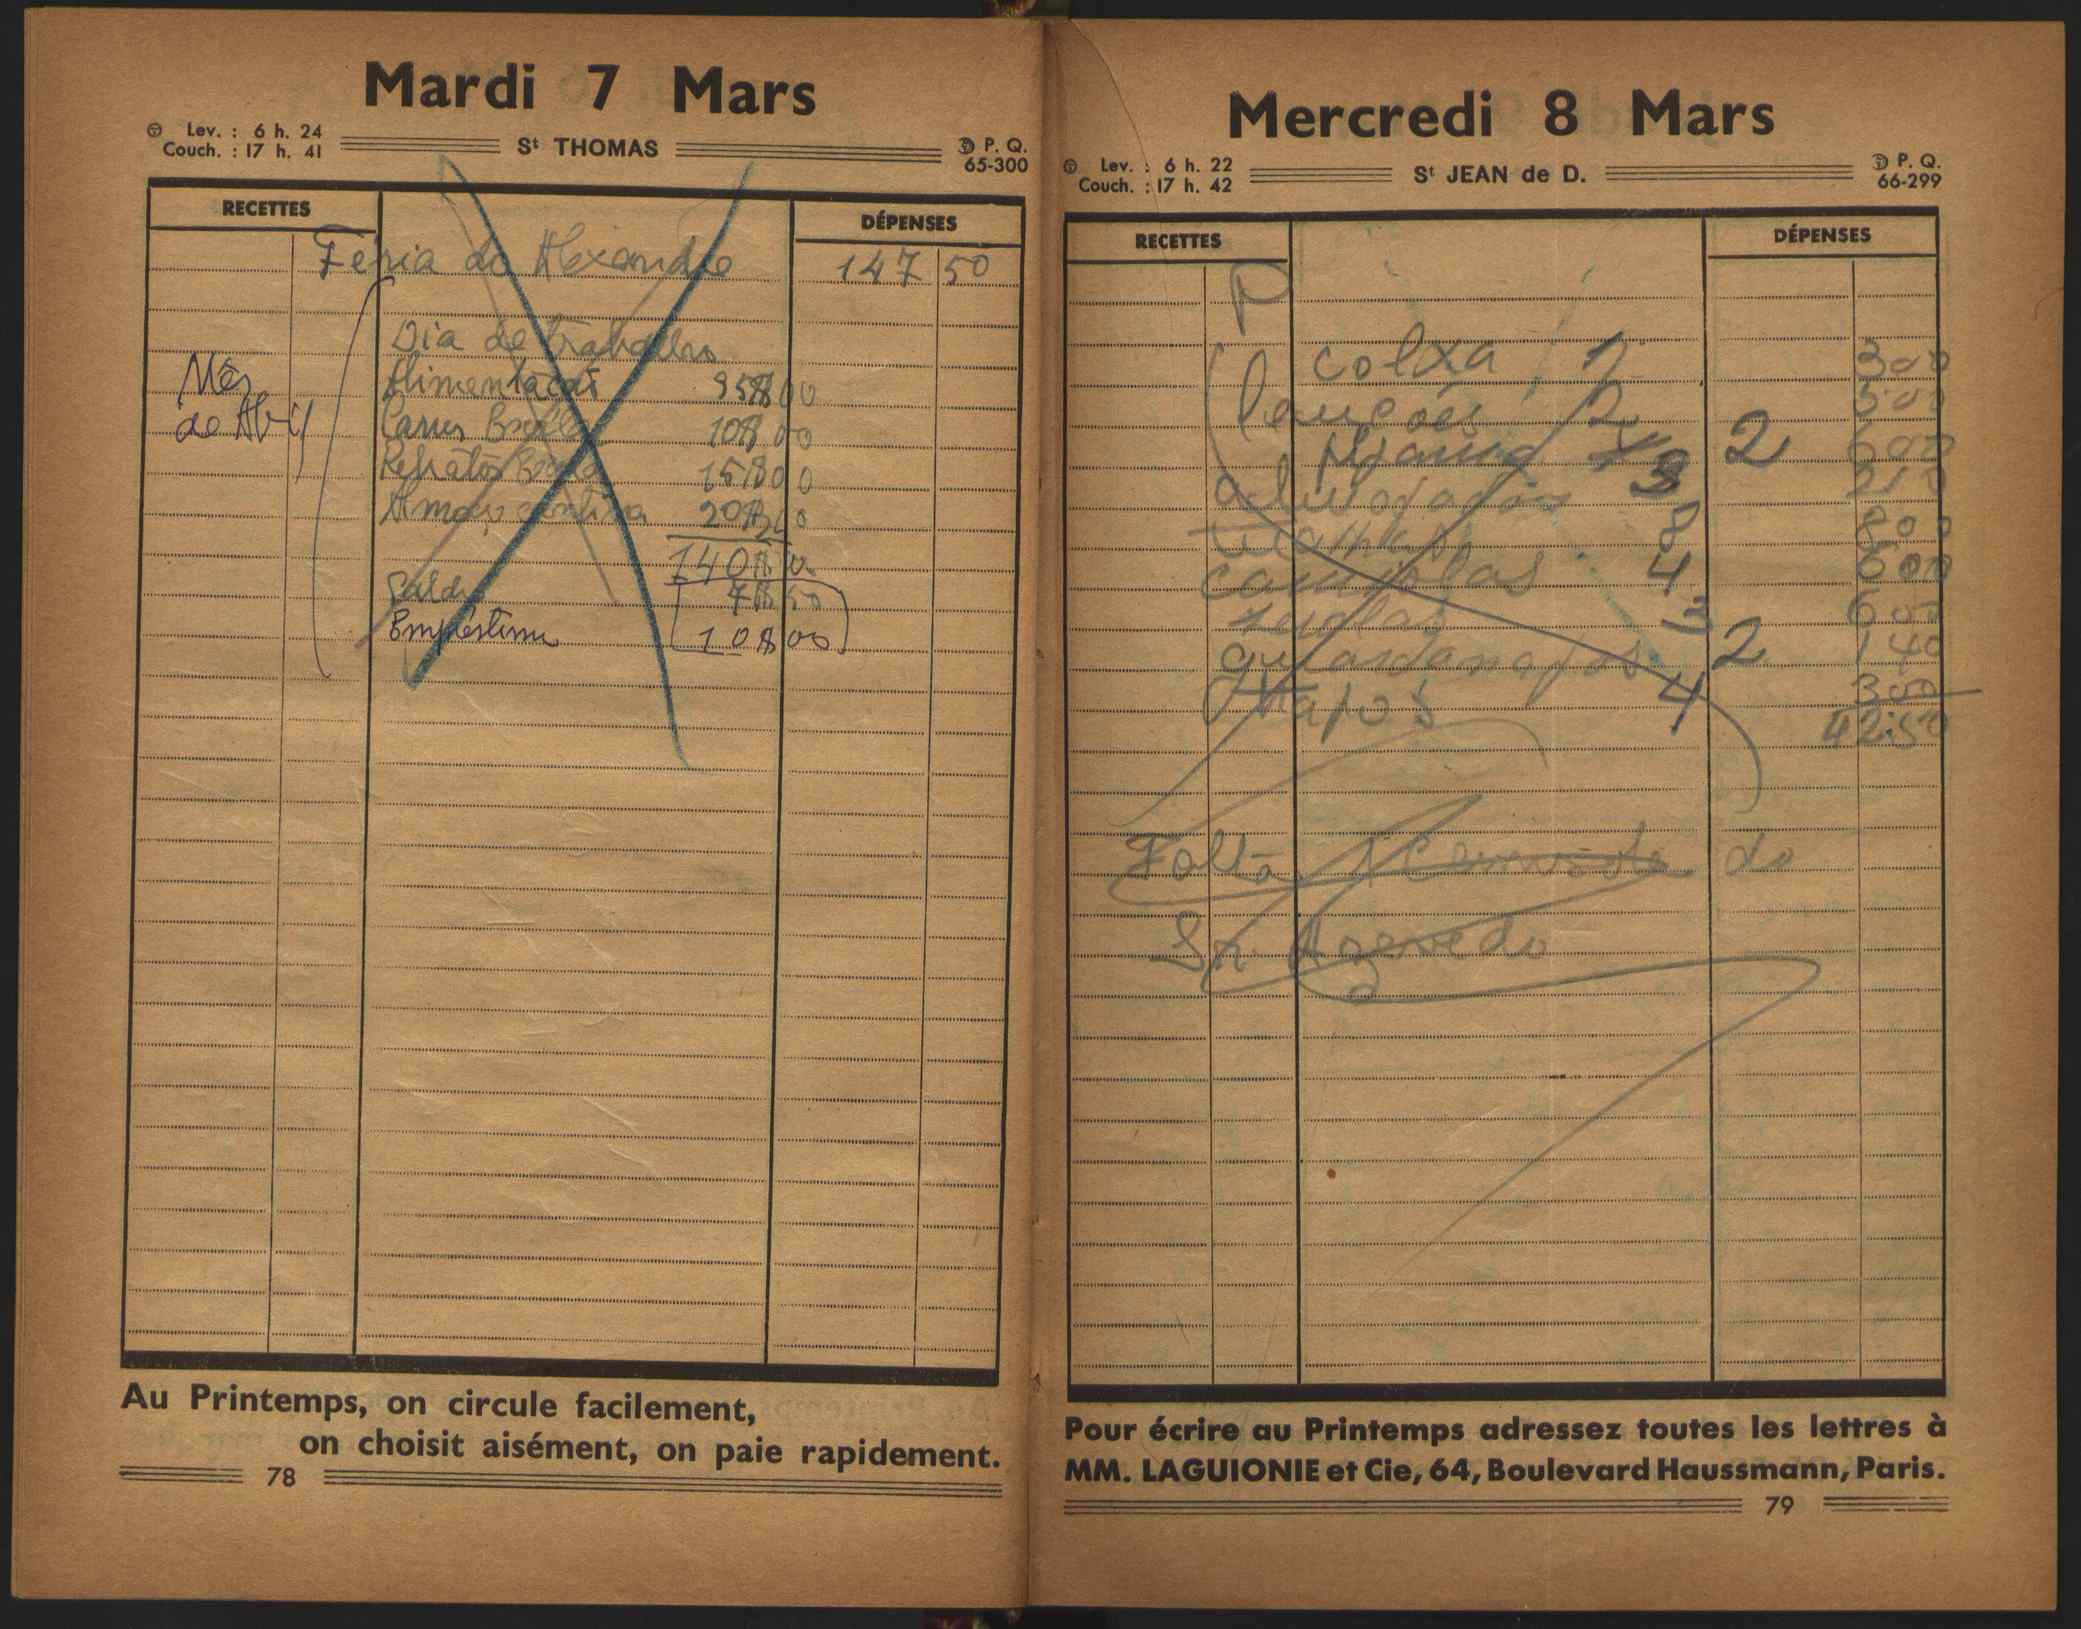 Mardi 7 Mars
Lev. : 6 h. 24
Couch. : 17 h. 41
St THOMAS
P. Q.
65-300
RECETTES
DÉPENSES
Féria do Alexandre 147 50
Dia de trabalho
Mês
de Abril
Alimentação 95$00
10$00
Retratos 15$00
20$20
140$
Saldo 7$50
Empréstimo 10$00
Au Printemps, on circule facilement,
on choisit aisément, on paie rapidement.
78
Mercredi 8 Mars
Lev. : 6 h. 22
Couch. : 17 h. 42
St JEAN de D.
P. Q.
66-299
RECETTES
DÉPENSES
P
colxa 1 300
lençóes 2 500
pijama 2 600
almofadas 3
8 800
camisolas 4 600
3 600
guardanapos 2 140
4 300
42:50
Falta 1 Camisola do
Sr. Azevedo
Pour écrire au Printemps adressez toutes les lettres à
MM. LAGUIONIE et Cie, 64, Boulevard Haussmann, Paris.
79